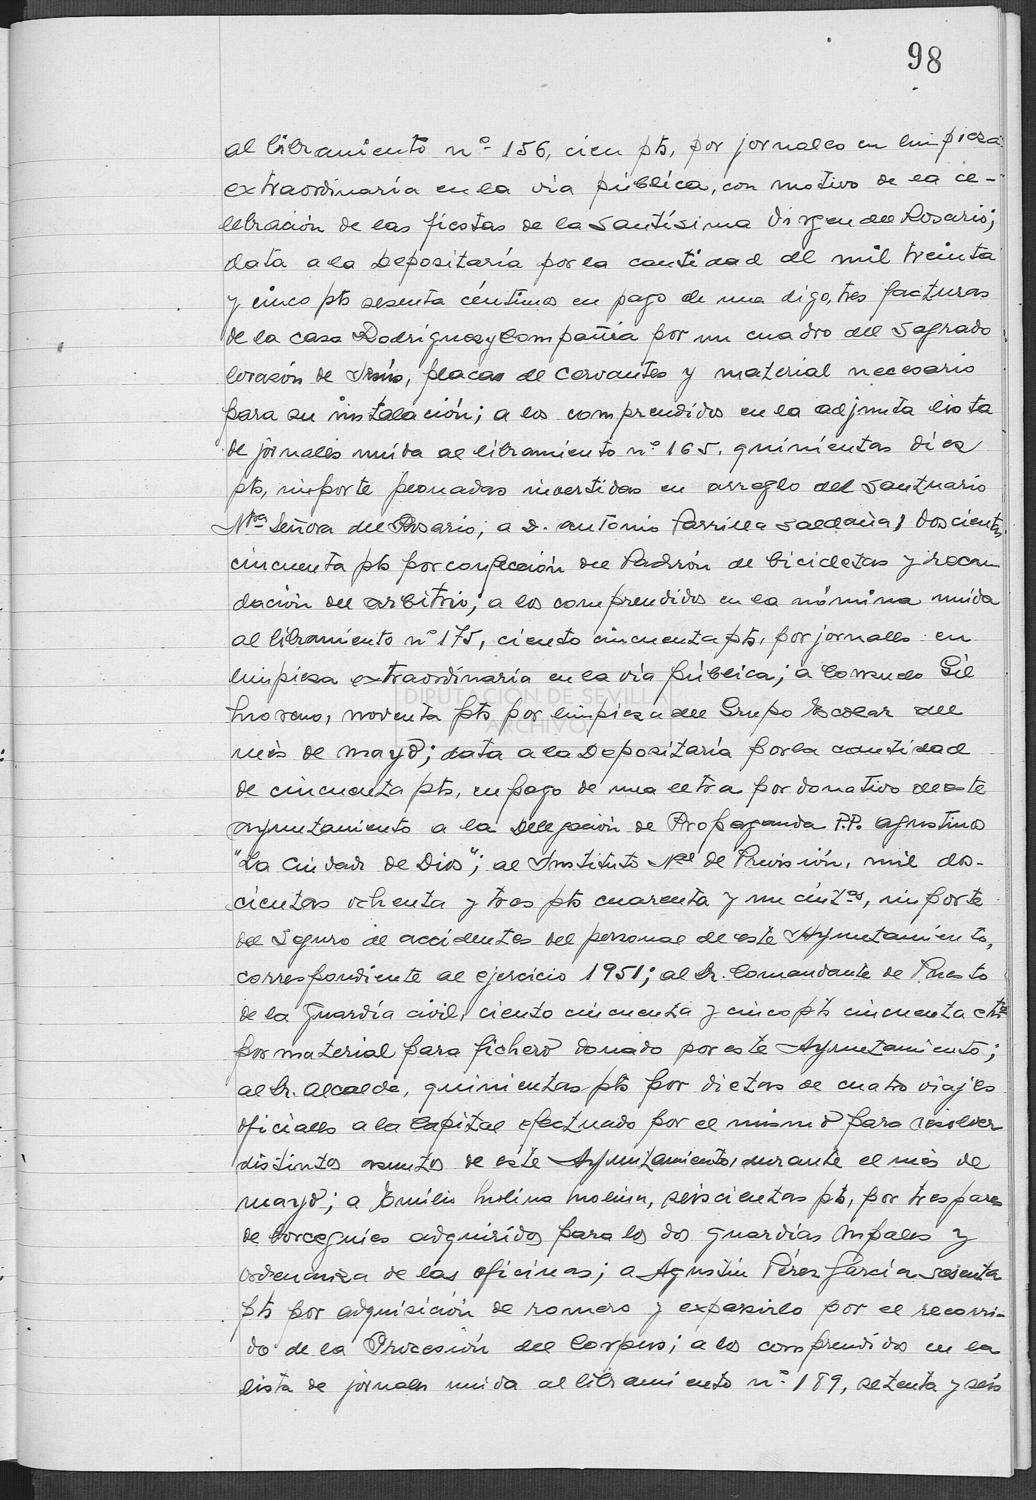 98
al libramiento nº 156, cien pts, por jornales en limpieza
extraordinaria en la via pública, con motivo de la ce-
lebración de las fiestas de la Santísima Virgen del Rosario;
data a la Depositaría por la cantidad de mil treinta
y cinco pts sesenta céntimos en pago de una digo, tres facturas
de la casa Rodriguez y Compañia por un cuadro del Sagrado
Corazón de Jesús, placas de Cervantes y material necesario
para su instalación; a los comprendidos en la adjunta lista
de jornales unida al libramiento nº 165, quinientas diez
pts, importe peonadas invertidas en arreglo del Santuario
Ntra Señora del Rosario; a D. Antonio Parrilla Saldaña, doscientas
cincuenta pts por confección del Padrón de bicicletas y recau
dación del arbitrio; a los comprendidos en la nómina unida
al libramiento nº 175, ciento cincuenta pts, por jornales en
limpieza extraordinaria en la via pública; a Consuelo Gil
Moreno, noventa pts por limpieza del Grupo Escolar del
mes de mayo; data a la Depositaría por la cantidad
de cincuenta pts, en pago de una letra por donativo de este
Ayuntamiento a la Delegación de Propaganda P.P. Agustinos
"La Ciudad de Dios"; al Instituto Nal de Previsión, mil dos-
cientas ochenta y tres pts cuarenta y un cintos, importe
del Seguro de accidentes del personal de este Ayuntamiento,
correspondiente al ejercicio 1951; al Sr. Comandante de Puesto
de la Guardia civil, ciento cincuenta y cinco pts cincuenta cts
por material para fichero donado por este Ayuntamiento;
al Sr. Alcalde, quinientas pts por dietas de cuatro viajes
oficiales a la Capital efectuado por el mismo para resolver
distintos asuntos de este Ayuntamiento, durante el mes de
mayo; a Emilio Molina Molina, seiscientas pts, por tres pares
de borceguies adquiridos para los dos guardias mpales y
ordenanza de las oficinas; a Agustín Pérez García sesenta
pts por adquisición de romero y esparcirlo por el recorri-
do de la Procesión del Corpus; a los comprendidos en la
lista de jornales unida al libramiento nº 189, setenta y seis
DIPUTACIÓN DE SEVILLA
ARCHIVO